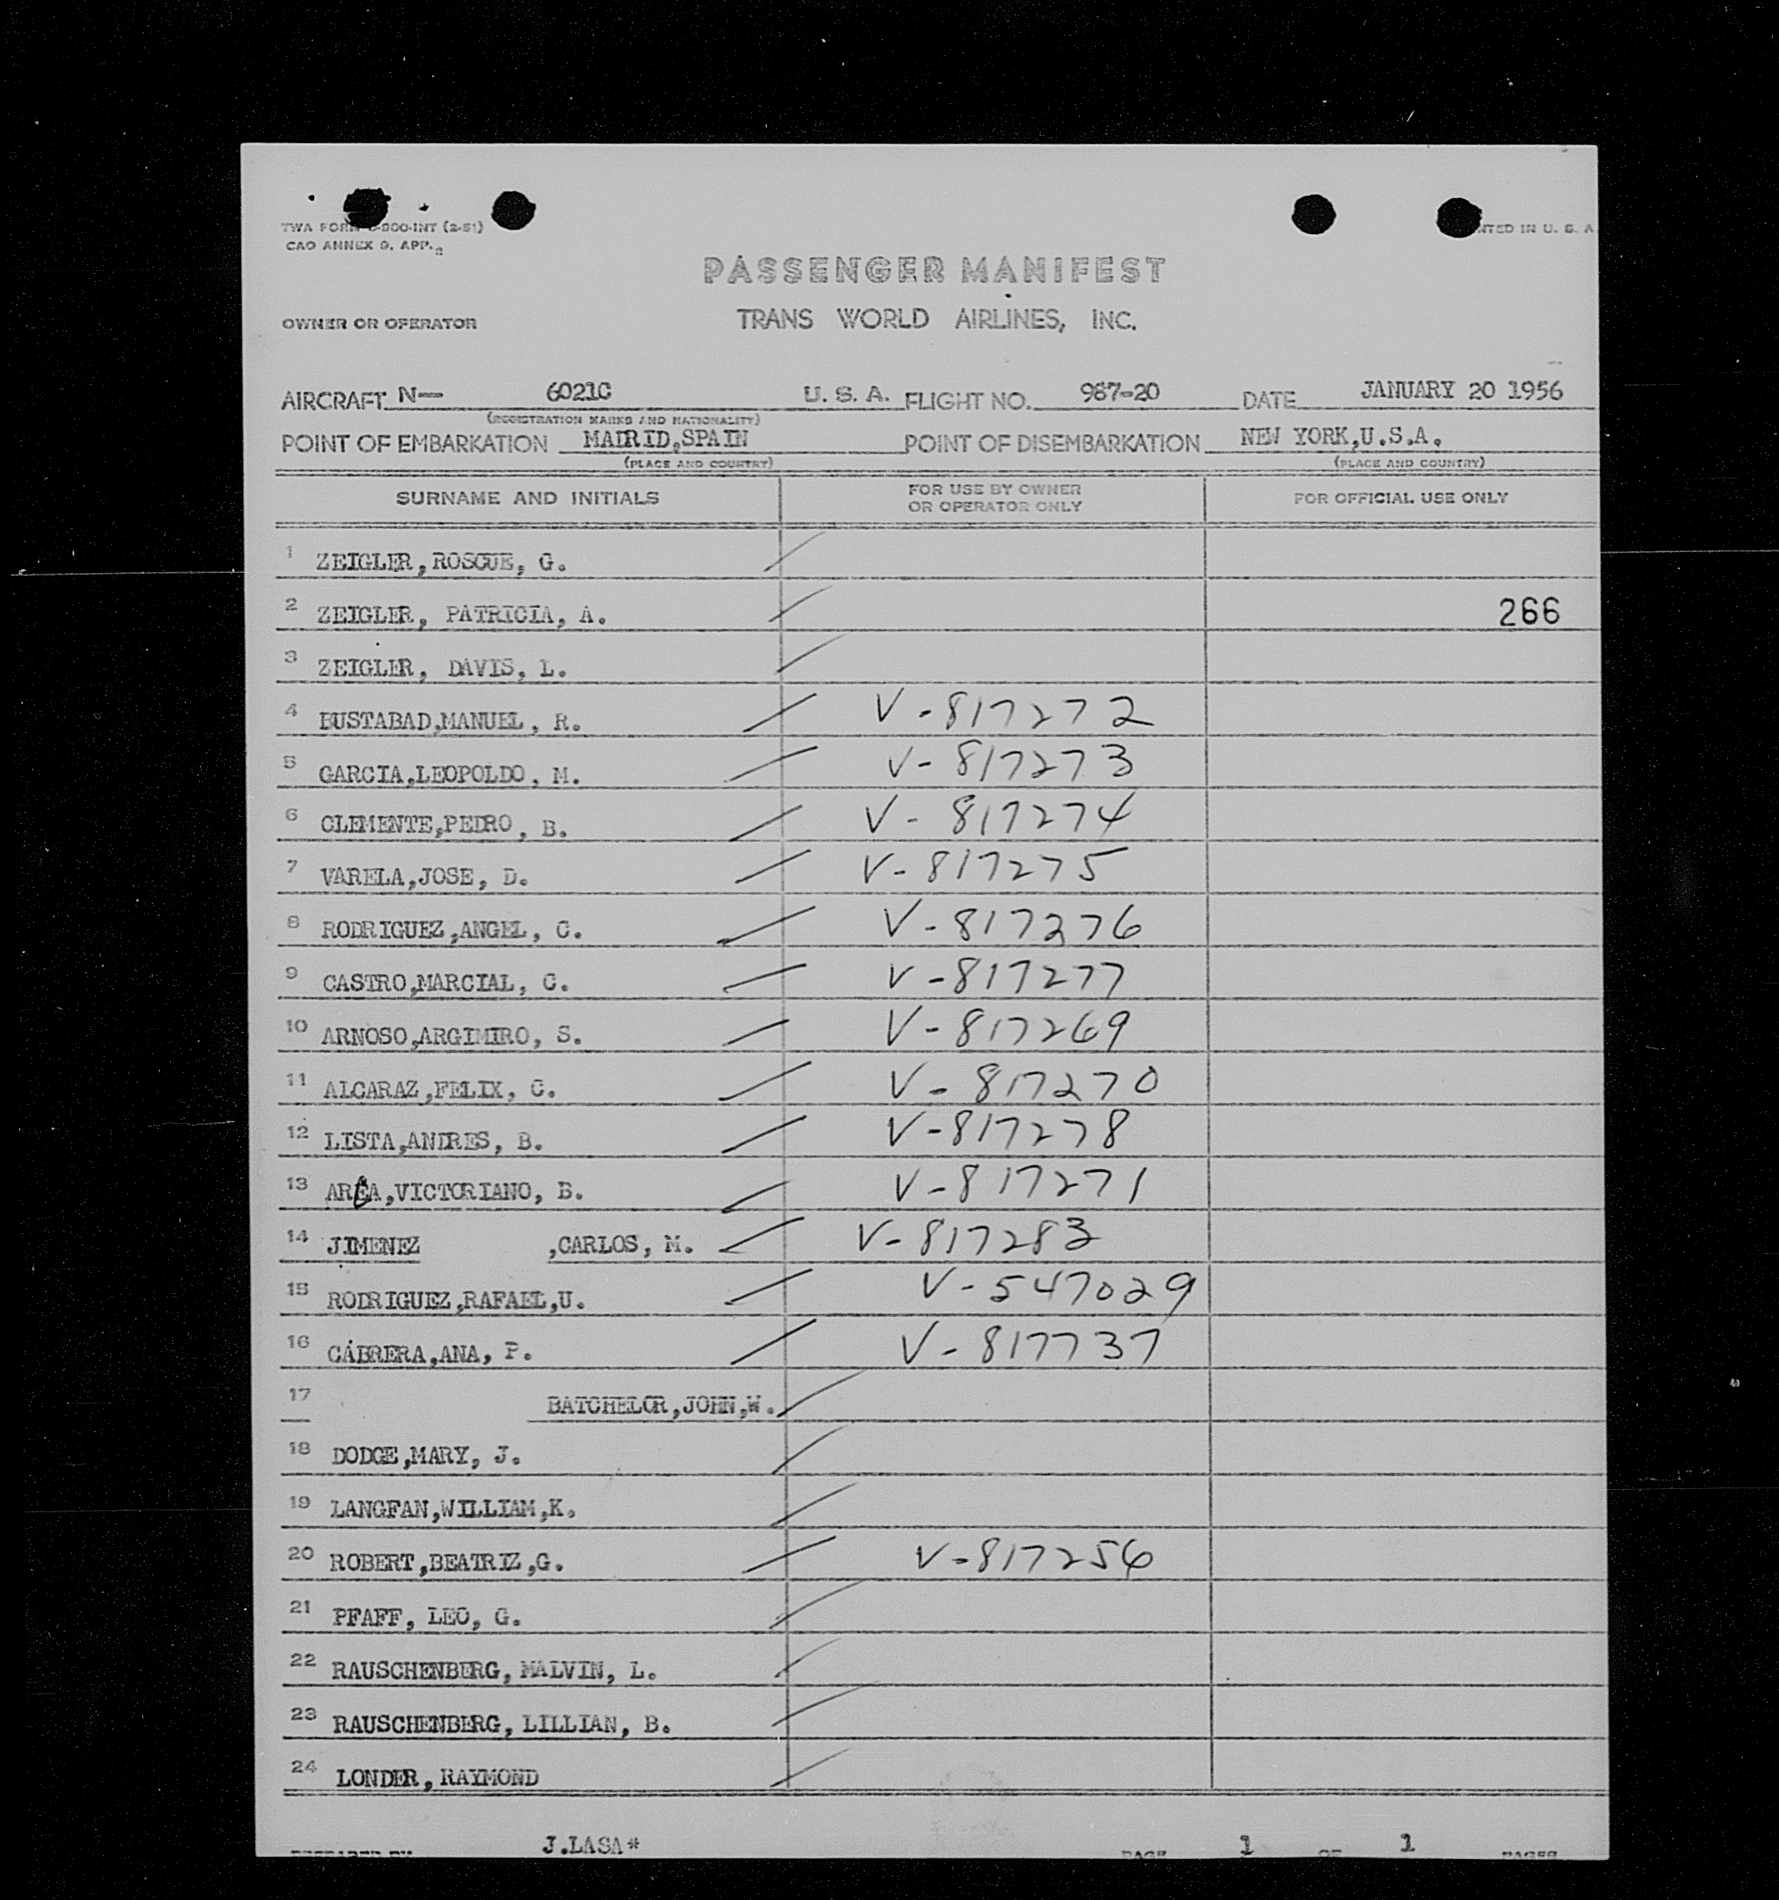 TWA FORM -800-INT (2-51)
CAO ANNEX 9. APP.
NTED IN U. S. A.
PASSENGER MANIFEST
OWNER OR OPERATOR TRANS WORLD AIRLINES, INC.
AIRCRAFT N— 6021C U. S. A. FLIGHT NO. 967-20 DATE JANUARY 20 1956
(REGISTRATION MARKS AND NATIONALITY)
POINT OF EMBARKATION MADRID,SPAIN POINT OF DISEMBARKATION NEW YORK,U.S.A.
(PLACE AND COUNTRY) (PLACE AND COUNTRY)
SURNAME AND INITIALS FOR USE BY OWNER OR OPERATOR ONLY FOR OFFICIAL USE ONLY
1 ZEIGLER,ROSCUE, G.
2 ZEIGLER, PATRICIA, A. 266
3 ZEIGLER, DAVIS, L.
4 BUSTABAD,MANUEL, R. V-817272
5 GARCIA,LEOPOLDO, M. V-817273
6 CLEMENTE,PEDRO, B. V-817274
7 VARELA,JOSE, D. V-817275
8 RODRIGUEZ,ANGEL, C. V-817276
9 CASTRO,MARCIAL, C. V-817277
10 ARNOSO,ARGIMIRO, S. V-817269
11 ALCARAZ,FELIX, C. V-817270
12 LISTA,ANDRES, B. V-817278
13 AREA,VICTORIANO, B. V-817271
14 JIMENEZ ,CARLOS, M. V-817283
15 RODRIGUEZ,RAFAEL,U. V-547029
16 CABRERA,ANA, P. V-817737
17 BATCHELOR,JOHN,W.
18 DODGE,MARY, J.
19 LANGFAN,WILLIAM,K.
20 ROBERT,BEATRIZ,G. V-817256
21 PFAFF, LEO, G.
22 RAUSCHENBERG, MALVIN, L.
23 RAUSCHENBERG, LILLIAN, B.
24 LONDER, RAYMOND
PREPARED BY J.LASA* PAGE 1 OF 1 PAGES